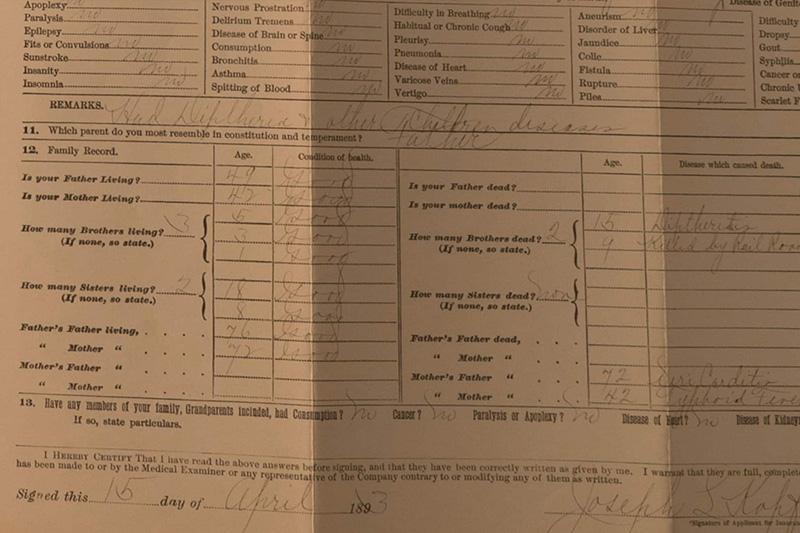 Apoplexy no Nervous Prostration Difficulty in Breathing no Aneurism Disease of Genit
Paralysis no Delirium Tremens no Habitual or Chronic Cough no Disorder of Liver no Difficulty
Epilepsy no Disease of Brain or Spine no Pleurisy no Jaundice no Dropsy
Fits or Convulsions no Consumption no Pneumonia no Colic no Gout
Sunstroke no Bronchitis no Disease of Heart no Fistula no Syphilis
Insanity no Asthma no Varicose Veins no Rupture no Cancer or
Insomnia no Spitting of Blood no Vertigo no Piles no Chronic
Scarlet F
REMARKS. Had Diphtheria & other Children diseases
11. Which parent do you most resemble in constitution and temperament? Father
12. Family Record. Age. Condition of health. Age. Disease which caused death.
Is your Father Living? 49 Good Is your Father dead?
Is your Mother Living? 47 Good Is your mother dead?
How many Brothers living? 3 5 Good How many Brothers dead? 2 15 Diptheretis
(If none, so state.) 3 Good (If none, so state.) 9 Killed by Rail Road
1 Good
How many Sisters living? 2 18 Good How many Sisters dead? non
(If none, so state.) 8 Good (If none, so state.)
Father's Father living, 76 Good Father's Father dead,
" Mother " 77 Good " Mother "
Mother's Father " Mother's Father " 72 Carditis
" Mother " " Mother " 42 Typhoid Fever
13. Have any members of your family, Grandparents included, had Consumption? no Cancer? no Paralysis or Apoplexy? no Disease of Heart? no Disease of Kidneys
If so, state particulars.
I HEREBY CERTIFY That I have read the above answers before signing, and that they have been correctly written as given by me. I warrant that they are full, complete
has been made to or by the Medical Examiner or any representative of the Company contrary to or modifying any of them as written.
Signed this 15 day of April 1893 Joseph L
*Signature of Applicant for Insuran